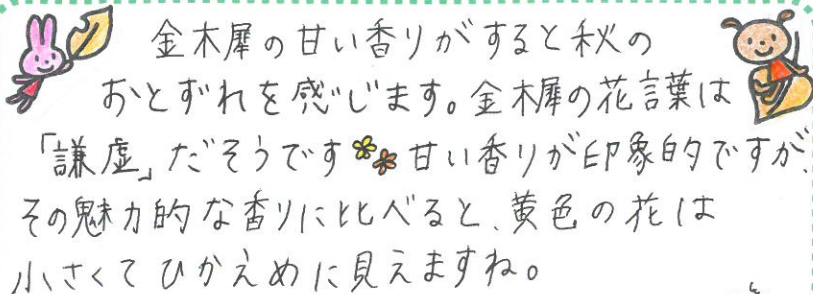 金木犀の甘い香りがすると秋の
おとずれを感じます。金木犀の花言葉は
「謙虚」だそうです 甘い香りが印象的ですが、
その魅力的な香りに比べると、黄色の花は
小さくてひかえめに見えますね。